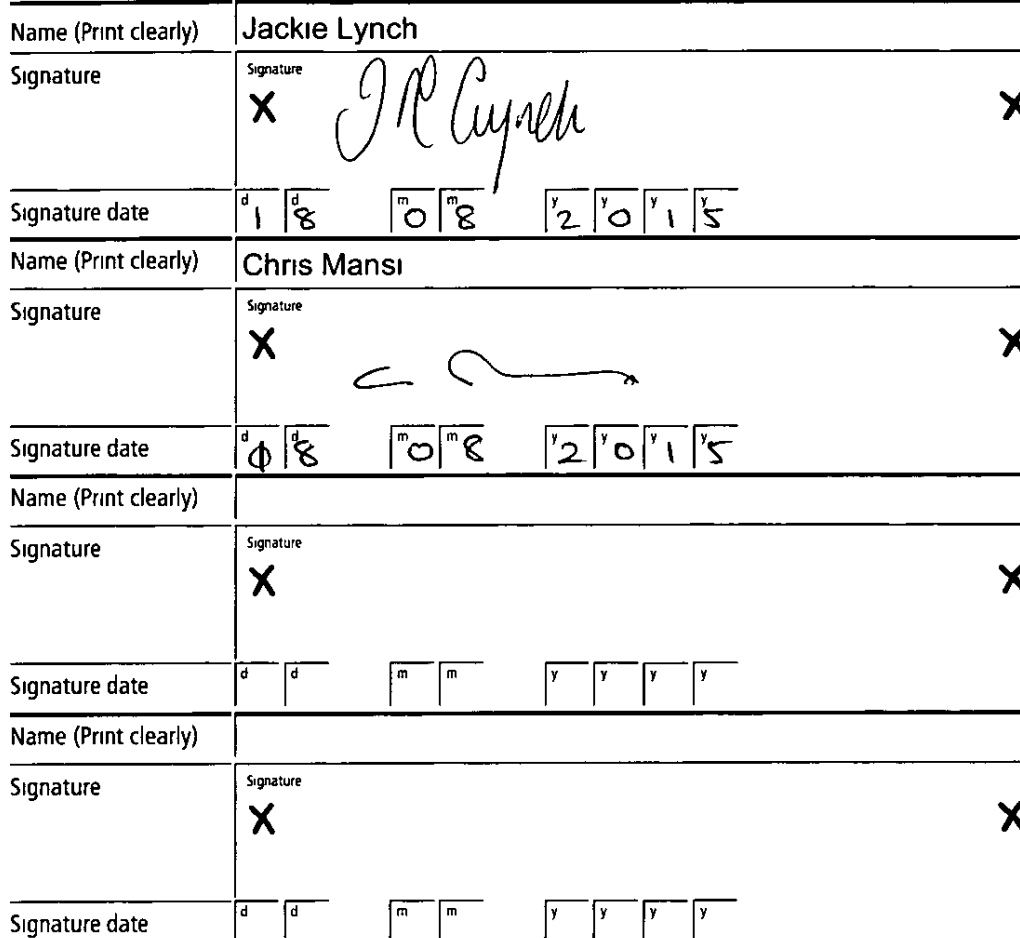 Name (Print clearly) Jackie Lynch
Signature Signature
X X
J R Lynch
Signature date d 1 d 8 m 0 m 8 y 2 y 0 y 1 y 5
Name (Print clearly) Chris Mansi
Signature Signature
X X
Signature date d d 8 m 0 m 8 y 2 y 0 y 1 y 5
Name (Print clearly)
Signature Signature
X X
Signature date d d m m y y y y
Name (Print clearly)
Signature Signature
X X
Signature date d d m m y y y y